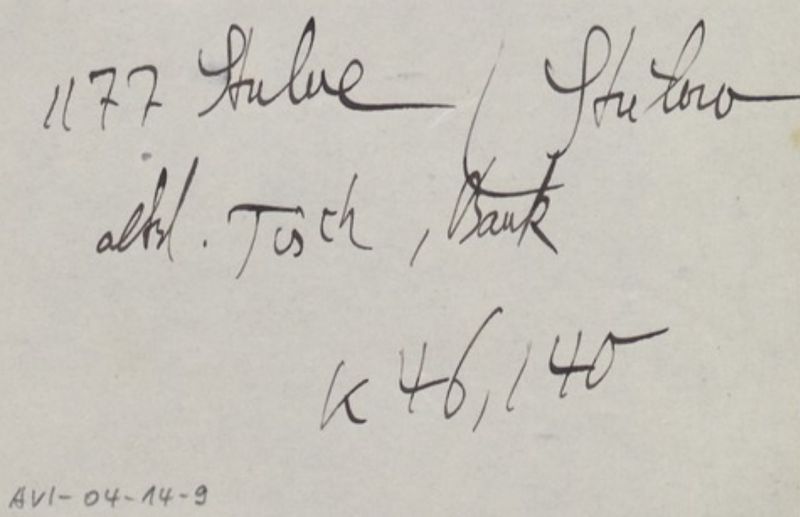 1177 Stulve / Stulow
altsl. Tisch, Bank
K 46, 140
AVI-04-14-9